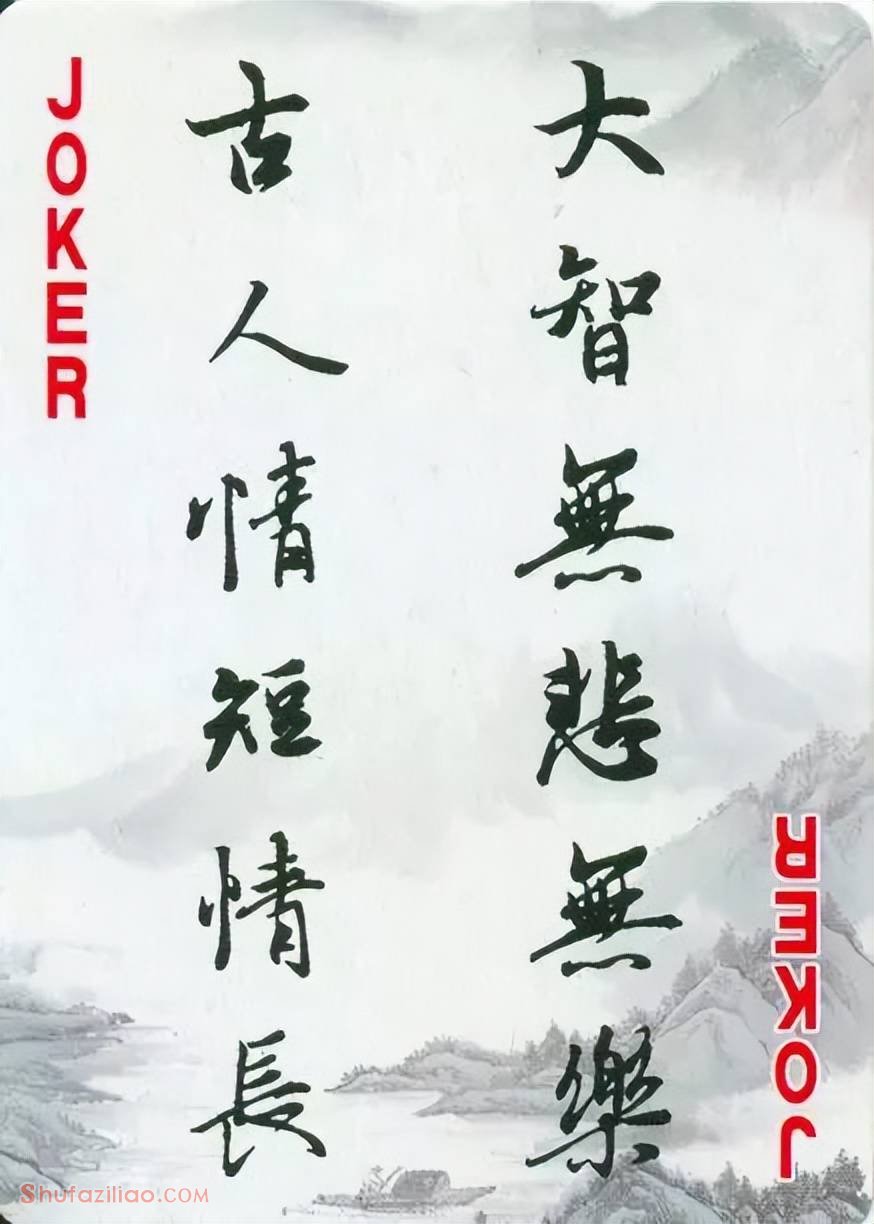 JOKER
大智無悲無樂
古人情短情長
JOKER
Shufaziliao.com